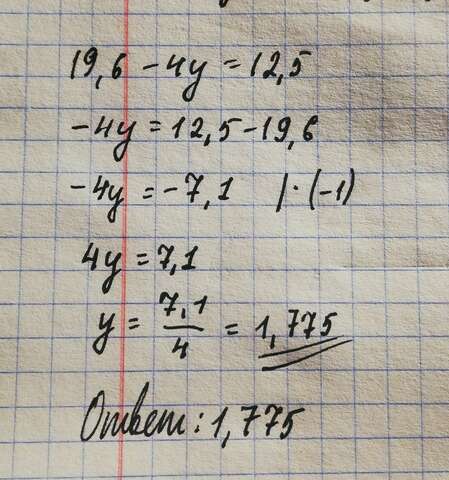 19,6 - 4y = 12,5
-4y = 12,5 - 19,6
-4y = -7,1 | · (-1)
4y = 7,1
y = 7,1/4 = 1,775
Ответ: 1,775